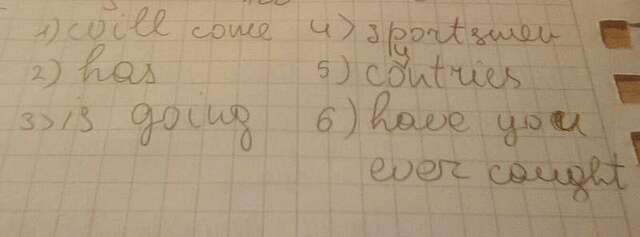 1) will come
2) has
3) is going
4) sportsmen
5) countries
6) have you
ever caught